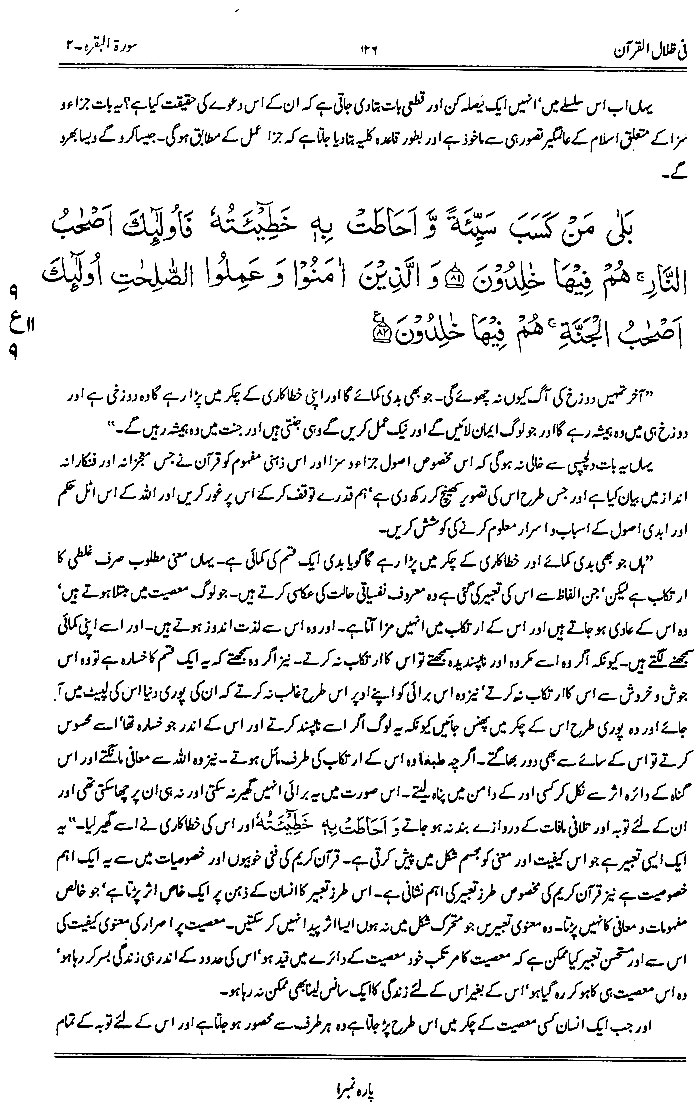 فی ظلال القرآن
۱۲۶
سورۃ البقرہ ۔ ۲
یہاں اب اس سلسلے میں' انہیں ایک فیصلہ کن اور قطعی بات بتا دی جاتی ہے کہ ان کے اس دعوے کی حقیقت کیا ہے؟ یہ بات جزاء و
سزا کے متعلق اسلام کے عالمگیر تصور ہی سے ماخوذ ہے اور بطور قاعدہ کلیہ بتا دیا جاتا ہے کہ جزا عمل کے مطابق ہوگی۔ جیسا کرو گے ویسا بھرو
گے۔
بَلٰی مَنْ كَسَبَ سَیِّئَةً وَّ اَحَاطَتْ بِهٖ خَطِیْٓئَتُهٗ فَاُولٰٓئِكَ اَصْحٰبُ
النَّارِ ۚ هُمْ فِیْهَا خٰلِدُوْنَ ﴿۸۱﴾ وَ الَّذِیْنَ اٰمَنُوْا وَ عَمِلُوا الصّٰلِحٰتِ اُولٰٓئِكَ
اَصْحٰبُ الْجَنَّةِ ۚ هُمْ فِیْهَا خٰلِدُوْنَ ﴿۸۲﴾
۹
ع ۱۱
۹
"آخر تمہیں دوزخ کی آگ کیوں نہ چھوئے گی۔ جو بھی بدی کمائے گا اور اپنی خطاکاری کے چکر میں پڑا رہے گا وہ دوزخی ہے اور
دوزخ ہی میں وہ ہمیشہ رہے گا اور جو لوگ ایمان لائیں گے اور نیک عمل کریں گے وہی جنتی ہیں اور جنت میں وہ ہمیشہ رہیں گے۔"
یہاں یہ بات دلچسپی سے خالی نہ ہوگی کہ اس مخصوص اصول جزاء و سزا اور اس ذہنی مفہوم کو قرآن نے جس معجزانہ اور فنکارانہ
انداز میں بیان کیا ہے اور جس طرح اس کی تصویر کھینچ کر رکھ دی ہے' ہم قدرے توقف کر کے اس پر غور کریں اور اللہ کے اس اٹل حکم
اور ابدی اصول کے اسباب و اسرار معلوم کرنے کی کوشش کریں۔
"ہاں جو بھی بدی کمائے اور خطاکاری کے چکر میں پڑا رہے گا گویا بدی ایک قسم کی کمائی ہے۔ یہاں معنی مطلوب صرف غلطی کا
ارتکاب ہے لیکن' جن الفاظ سے اس کی تعبیر کی گئی ہے وہ معروف نفسیاتی حالت کی عکاسی کرتے ہیں۔ جو لوگ معصیت میں مبتلا ہوتے ہیں'
وہ اس کے عادی ہو جاتے ہیں اور اس کے ارتکاب میں انہیں مزا آتا ہے۔ اور وہ اس سے لذت اندوز ہوتے ہیں۔ اور اسے اپنی کمائی
سمجھنے لگتے ہیں۔ کیونکہ اگر وہ اسے مکروہ اور ناپسندیدہ سمجھتے تو اس کا ارتکاب نہ کرتے۔ نیز اگر وہ سمجھتے کہ یہ ایک قسم کا خسارہ ہے تو وہ اس
جوش و خروش سے اس کا ارتکاب نہ کرتے' نیز وہ اس برائی کو اپنے اوپر اس طرح غالب نہ کرتے کہ ان کی پوری دنیا اس کی لپیٹ میں آ
جائے اور وہ پوری طرح اس کے چکر میں پھنس جائیں کیونکہ یہ لوگ اگر اسے ناپسند کرتے اور اس کے اندر جو خسارہ تھا' اسے محسوس
کرتے تو اس کے سائے سے بھی دور بھاگتے۔ اگرچہ طبعا وہ اس کے ارتکاب کی طرف مائل ہوتے۔ نیز وہ اللہ سے معافی مانگتے اور اس
گناہ کے دائرہ اثر سے نکل کر کسی اور کے دامن میں پناہ لیتے۔ اس صورت میں یہ برائی انہیں گھیر نہ سکتی اور نہ ہی ان پر چھا سکتی تھی اور
ان کے لئے توبہ اور تلافی مافات کے دروازے بند نہ ہو جاتے وَ اَحَاطَتْ بِهٖ خَطِیْٓئَتُهٗ اور اس کی خطاکاری نے اسے گھیر لیا۔" یہ
ایک ایسی تعبیر ہے جو اس کیفیت اور معنی کو مجسم شکل میں پیش کرتی ہے۔ قرآن کریم کی فنی خوبیوں اور خصوصیات میں سے یہ ایک اہم
خصوصیت ہے نیز قرآن کریم کی مخصوص طرز تعبیر کی اہم نشانی ہے۔ اس طرز تعبیر کا انسان کے ذہن پر ایک خاص اثر پڑتا ہے' جو خالص
مفہومات و معانی کا نہیں پڑتا۔ وہ معنوی تعبیریں جو متحرک شکل میں نہ ہوں ایسا اثر پیدا نہیں کر سکتیں۔ معصیت پر اصرار کی معنوی کیفیت کی
اس سے اور مستحسن تعبیر کیا ممکن ہے کہ معصیت کا مرتکب خود معصیت کے دائرے میں قید ہو' اس کی حدود کے اندر ہی زندگی بسر کر رہا ہو'
وہ اس معصیت ہی کا ہو کر رہ گیا ہو' اس کے بغیر اس کے لئے زندگی کا ایک سانس لینا بھی ممکن نہ رہا ہو۔
اور جب ایک انسان کسی معصیت کے چکر میں اس طرح پڑ جاتا ہے وہ ہر طرف سے محصور ہو جاتا ہے اور اس کے لئے توبہ کے تمام
پارہ نمبر۱